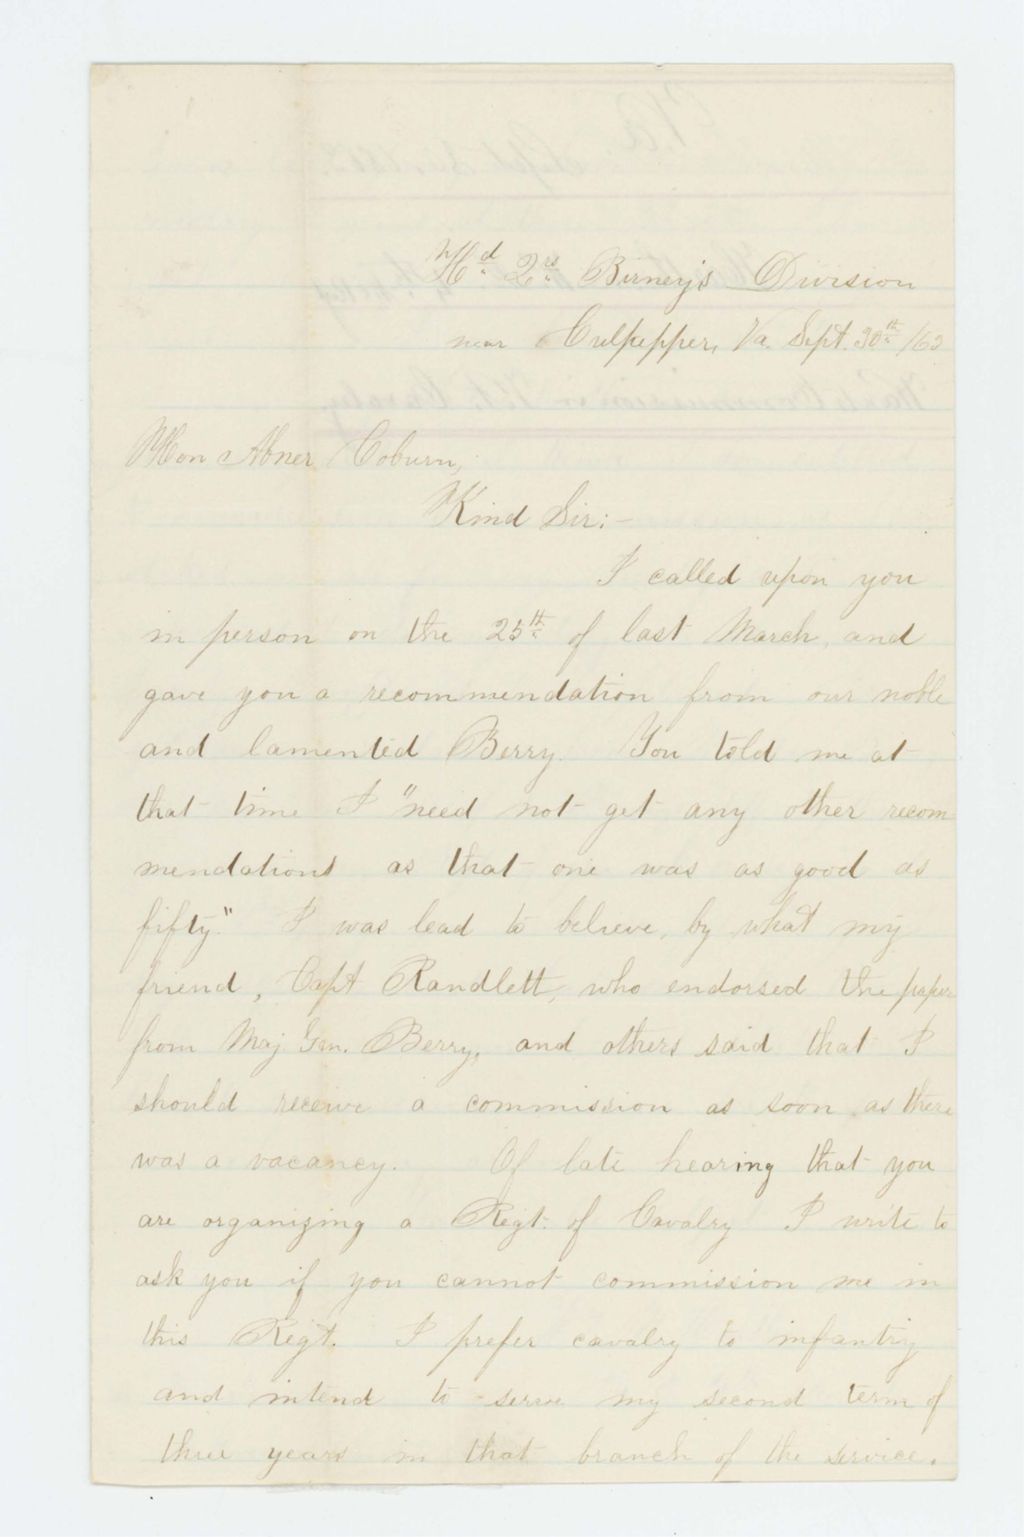 Hd. Qrs. Birney's Division
near Culpepper, Va. Sept. 30th /63
Hon Abner Coburn,
Kind Sir:-
I called upon you
in person on the 25th of last March, and
gave you a recommendation from our noble
and lamented Berry. You told me at
that time I "need not get any other recom
mendations as that one was as good as
fifty." I was lead to believe, by what my
friend, Capt Randlett, who endorsed the paper
from Maj. Gen. Berry, and others said that I
should receive a commission as soon as there
was a vacancy. Of late hearing that you
are organizing a Regt. of Cavalry I write to
ask you if you cannot commission me in
this Regt. I prefer cavalry to infantry
and intend to serve my second term of
three years in that branch of the service.